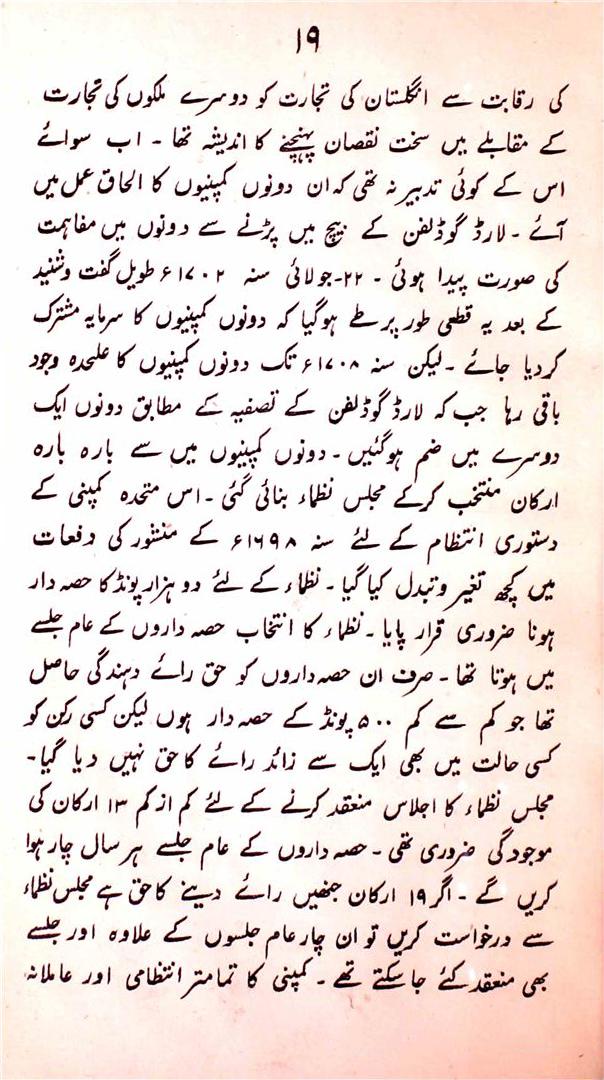 ۱۹
کی رقابت سے انگلستان کی تجارت کو دوسرے ملکوں کی تجارت
کے مقابلے میں سخت نقصان پہنچنے کا اندیشہ تھا ۔ اب سوائے
اس کے کوئی تدبیر نہ تھی کہ ان دونوں کمپنیوں کا الحاق عمل میں
آئے ۔ لارڈ گوڈلفن کے بیچ میں پڑنے سے دونوں میں مفاہمت
کی صورت پیدا ہوئی ۔ ۲۲۔جولائی سنہ ۱۷۰۲ء طویل گفت و شنید
کے بعد یہ قطعی طور پر طے ہوگیا کہ دونوں کمپنیوں کا سرمایہ مشترک
کردیا جائے ۔ لیکن سنہ ۱۷۰۸ء تک دونوں کمپنیوں کا علیحدہ وجود
باقی رہا جب کہ لارڈ گوڈلفن کے تصفیہ کے مطابق دونوں ایک
دوسرے میں ضم ہوگئیں ۔ دونوں کمپنیوں میں سے بارہ بارہ
ارکان منتخب کرکے مجلس نظماء بنائی گئی ۔ اس متحدہ کمپنی کے
دستوری انتظام کے لئے سنہ ۱۶۹۸ء کے منشور کی دفعات
میں کچھ تغیر و تبدل کیا گیا ۔ نظماء کے لئے دو ہزار پونڈ کا حصہ دار
ہونا ضروری قرار پایا ۔ نظماء کا انتخاب حصہ داروں کے عام جلسے
میں ہوتا تھا ۔ صرف ان حصہ داروں کو حق رائے دہندگی حاصل
تھا جو کم سے کم ۵۰۰ پونڈ کے حصہ دار ہوں لیکن کسی رکن کو
کسی حالت میں بھی ایک سے زائد رائے کا حق نہیں دیا گیا ۔
مجلس نظماء کا اجلاس منعقد کرنے کے لئے کم از کم ۱۳ ارکان کی
موجودگی ضروری تھی ۔ حصہ داروں کے عام جلسے ہر سال چار ہوا
کریں گے ۔ اگر ۱۹ ارکان جنھیں رائے دینے کا حق ہے مجلس نظماء
سے درخواست کریں تو ان چار عام جلسوں کے علاوہ اور جلسے
بھی منعقد کئے جاسکتے تھے ۔ کمپنی کا تمامتر انتظامی اور عاملانہ